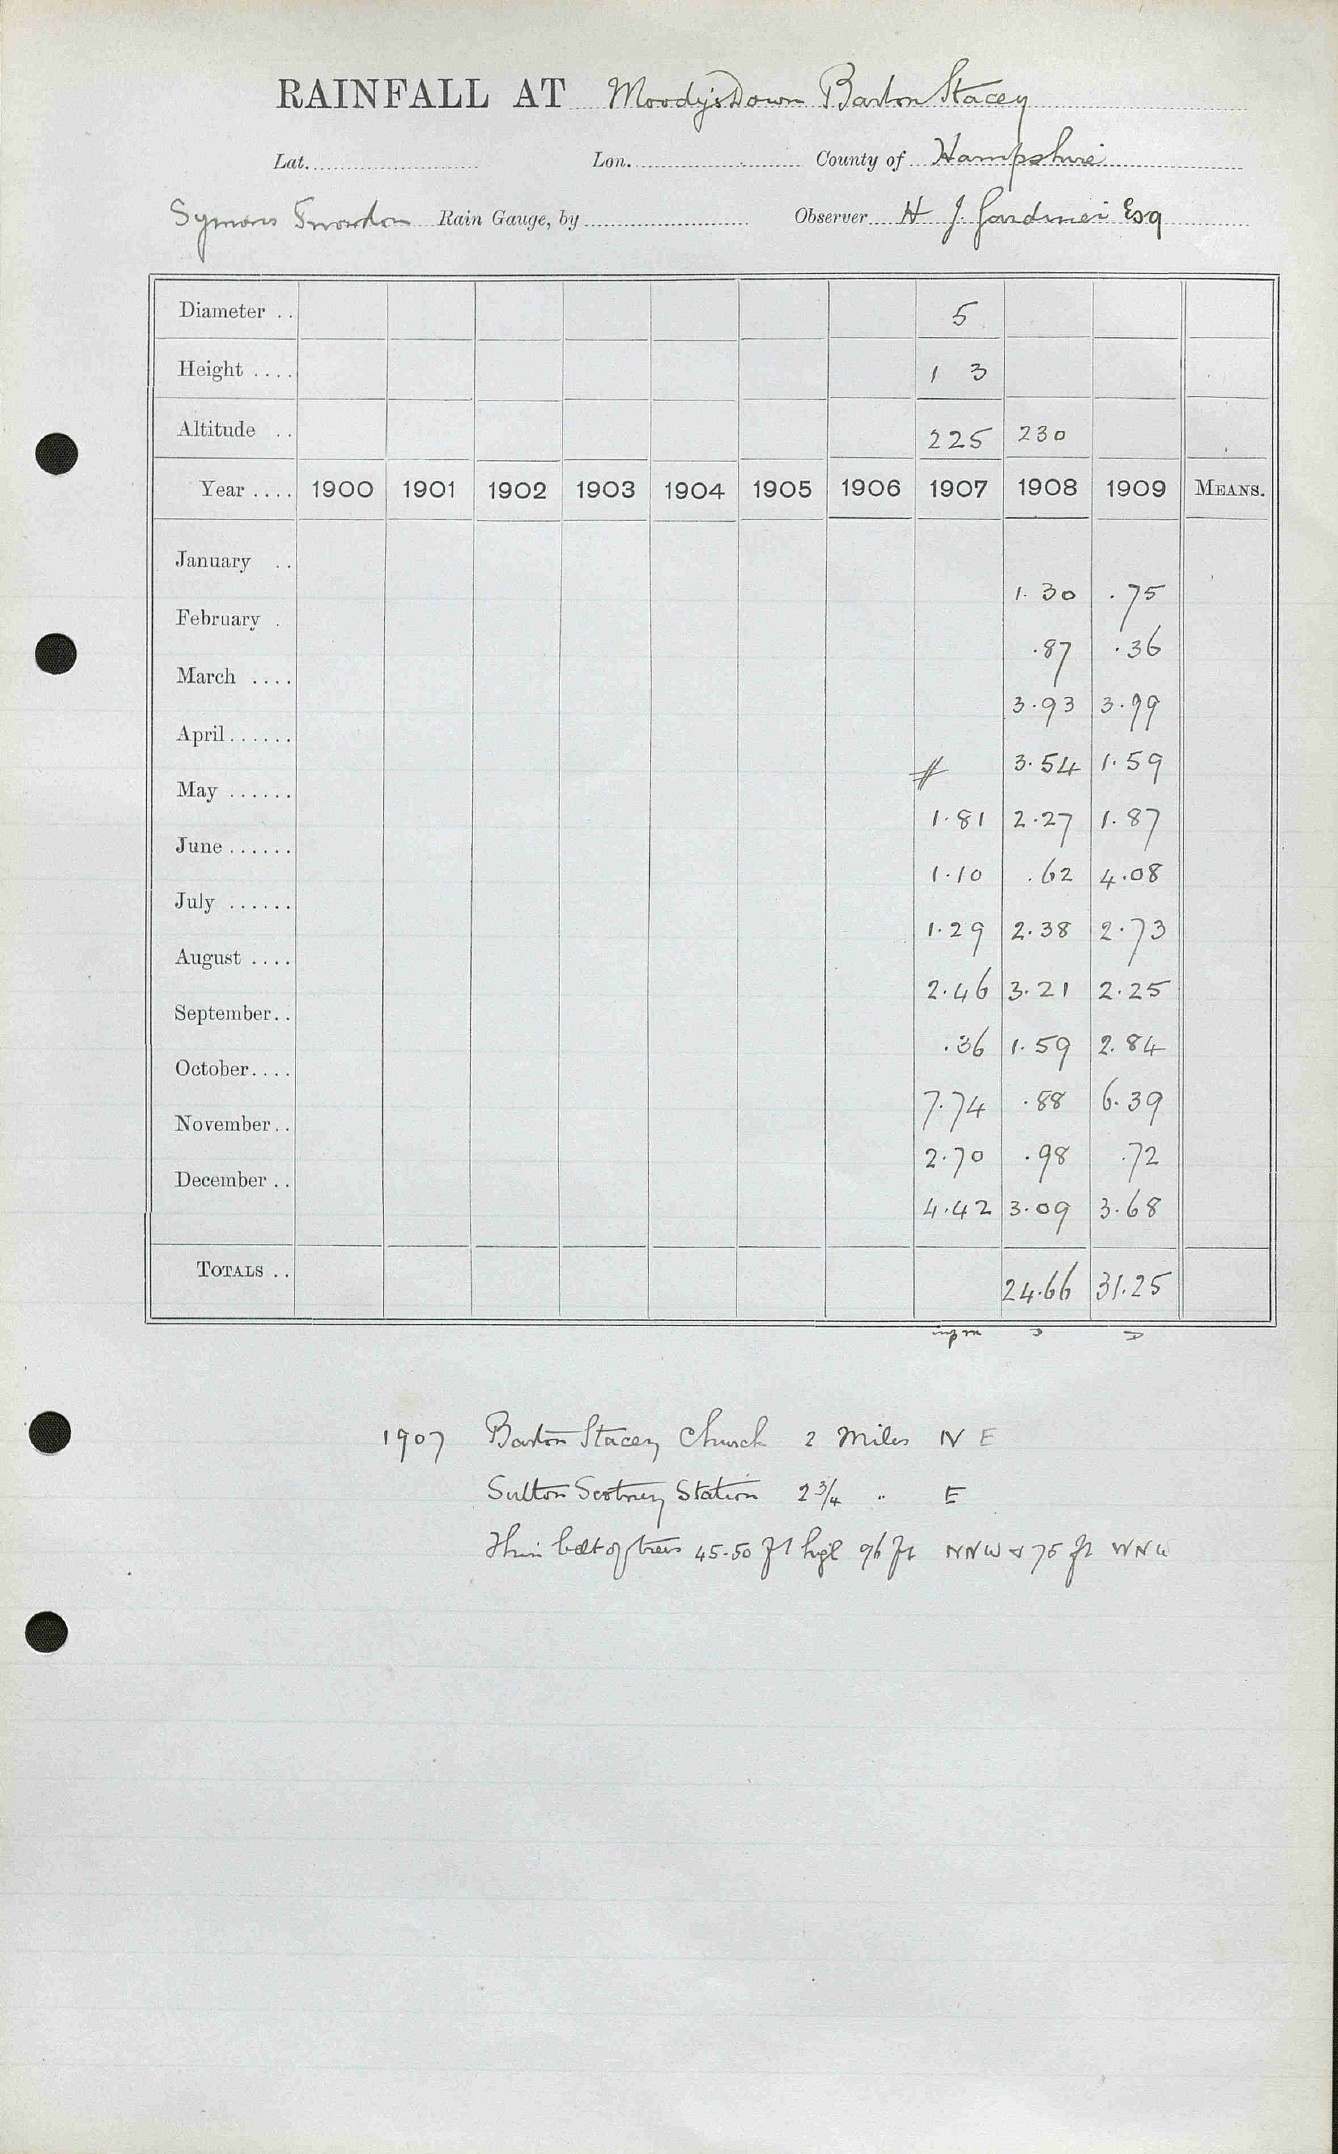 RAINFALL AT Moody's Down Barton Stacey
Lat. Lon. County of Hampshire
Symons Snowdon Rain Gauge, by Observer H J. Gardiner Esq
Diameter .. 5
Height .... 1 3
Altitude .. 225 230
Year .... 1900 1901 1902 1903 1904 1905 1906 1907 1908 1909 MEANS.
January .. 1.30 .75
February . .87 .36
March .... 3.93 3.99
April...... # 3.54 1.59
May ...... 1.81 2.27 1.87
June ...... 1.10 .62 4.08
July ...... 1.29 2.38 2.73
August .... 2.46 3.21 2.25
September.. .36 1.59 2.84
October.... 7.74 .88 6.39
November.. 2.70 .98 .72
December .. 4.42 3.09 3.68
TOTALS .. 24.66 31.25
1907 Barton Stacey Church 2 Miles N E
Sutton Scotney Station 2 3/4 " E
Thin belt of trees 45-50 ft high 96 ft NNW & 75 ft WNW